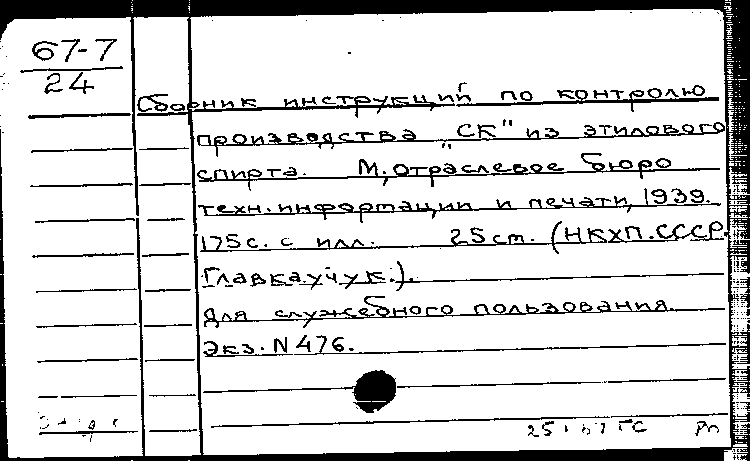 67-7
24
Сборник инструкций по контролю
производства „СК" из этилового
спирта. М, отраслевое бюро
техн. информации и печати, 1939.
175 с. с илл. 25 cm. (НКХП. СССР.
Главкаучук.).
Для служебного пользования.
Экз. N 476.